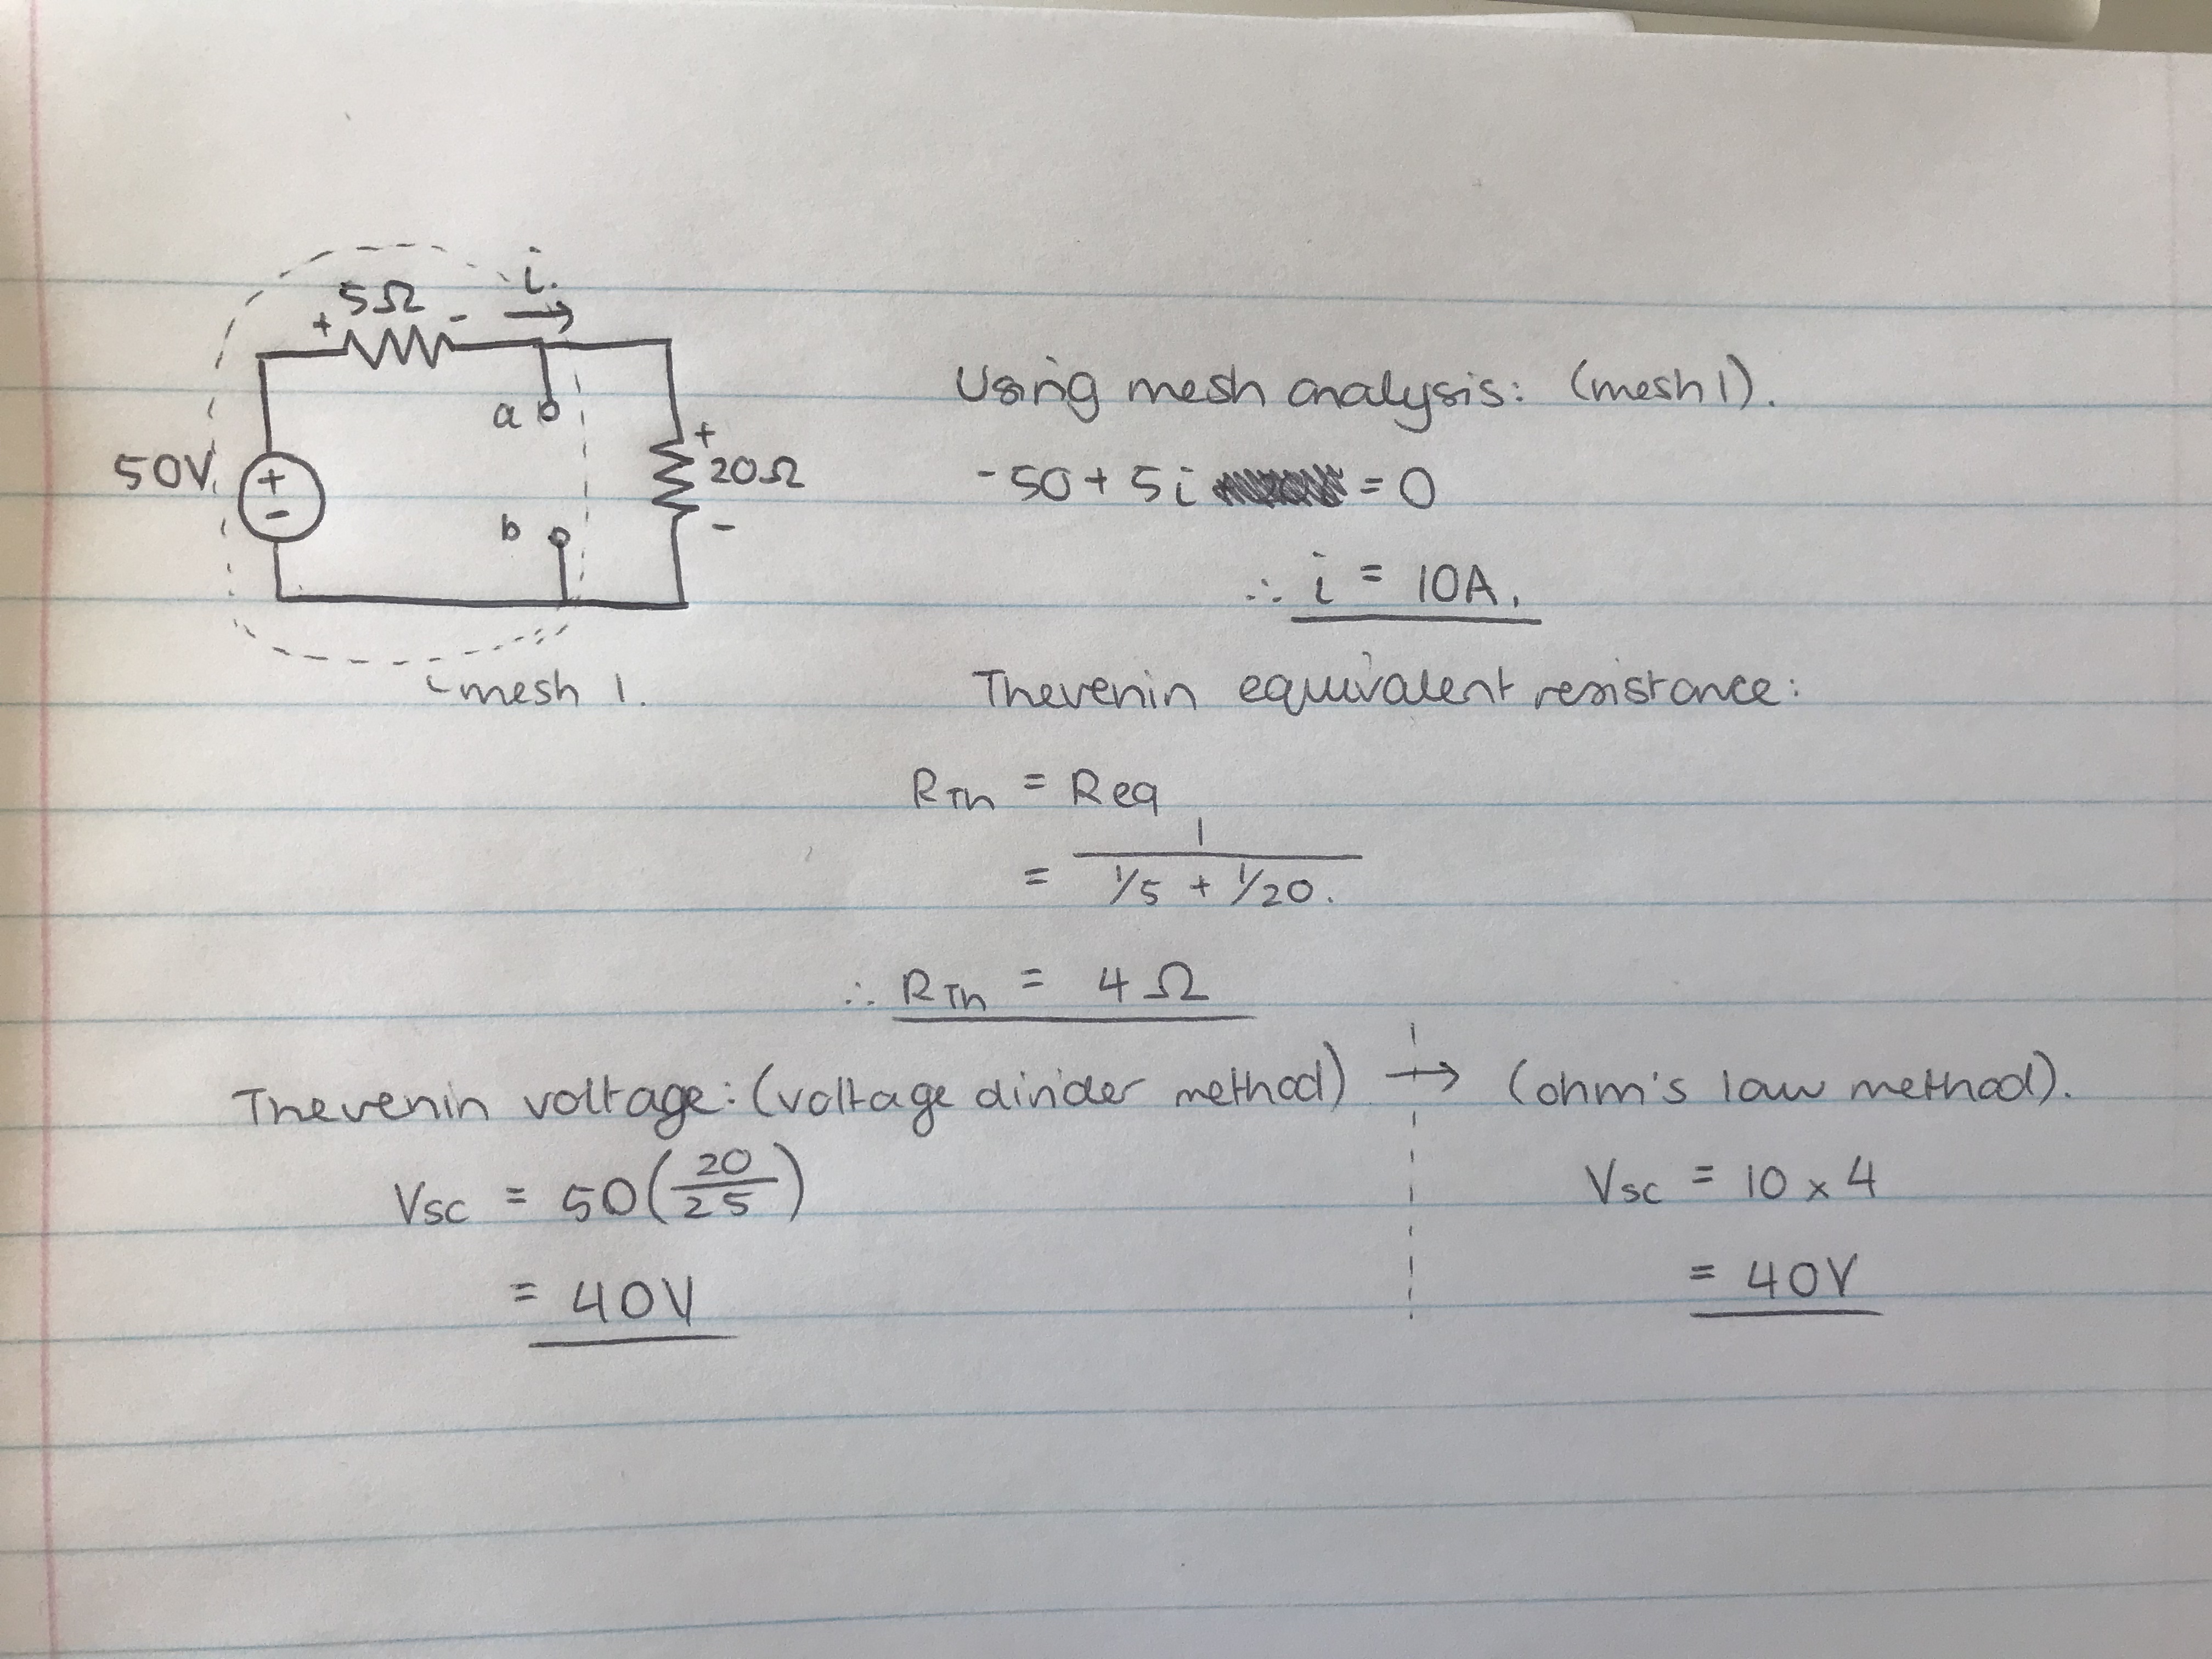 i.
5Ω
+ -
a
50V
+
-
+
20Ω
-
b
mesh 1.
Using mesh analysis: (mesh 1).
-50 + 5i = 0
∴ i = 10A.
Thevenin equivalent resistance:
RTh = Req
= 1 / (1/5 + 1/20.)
∴ RTh = 4Ω
Thevenin voltage: (voltage divider method) → (ohm's law method).
Vsc = 50(20/25)
= 40V
Vsc = 10 x 4
= 40V